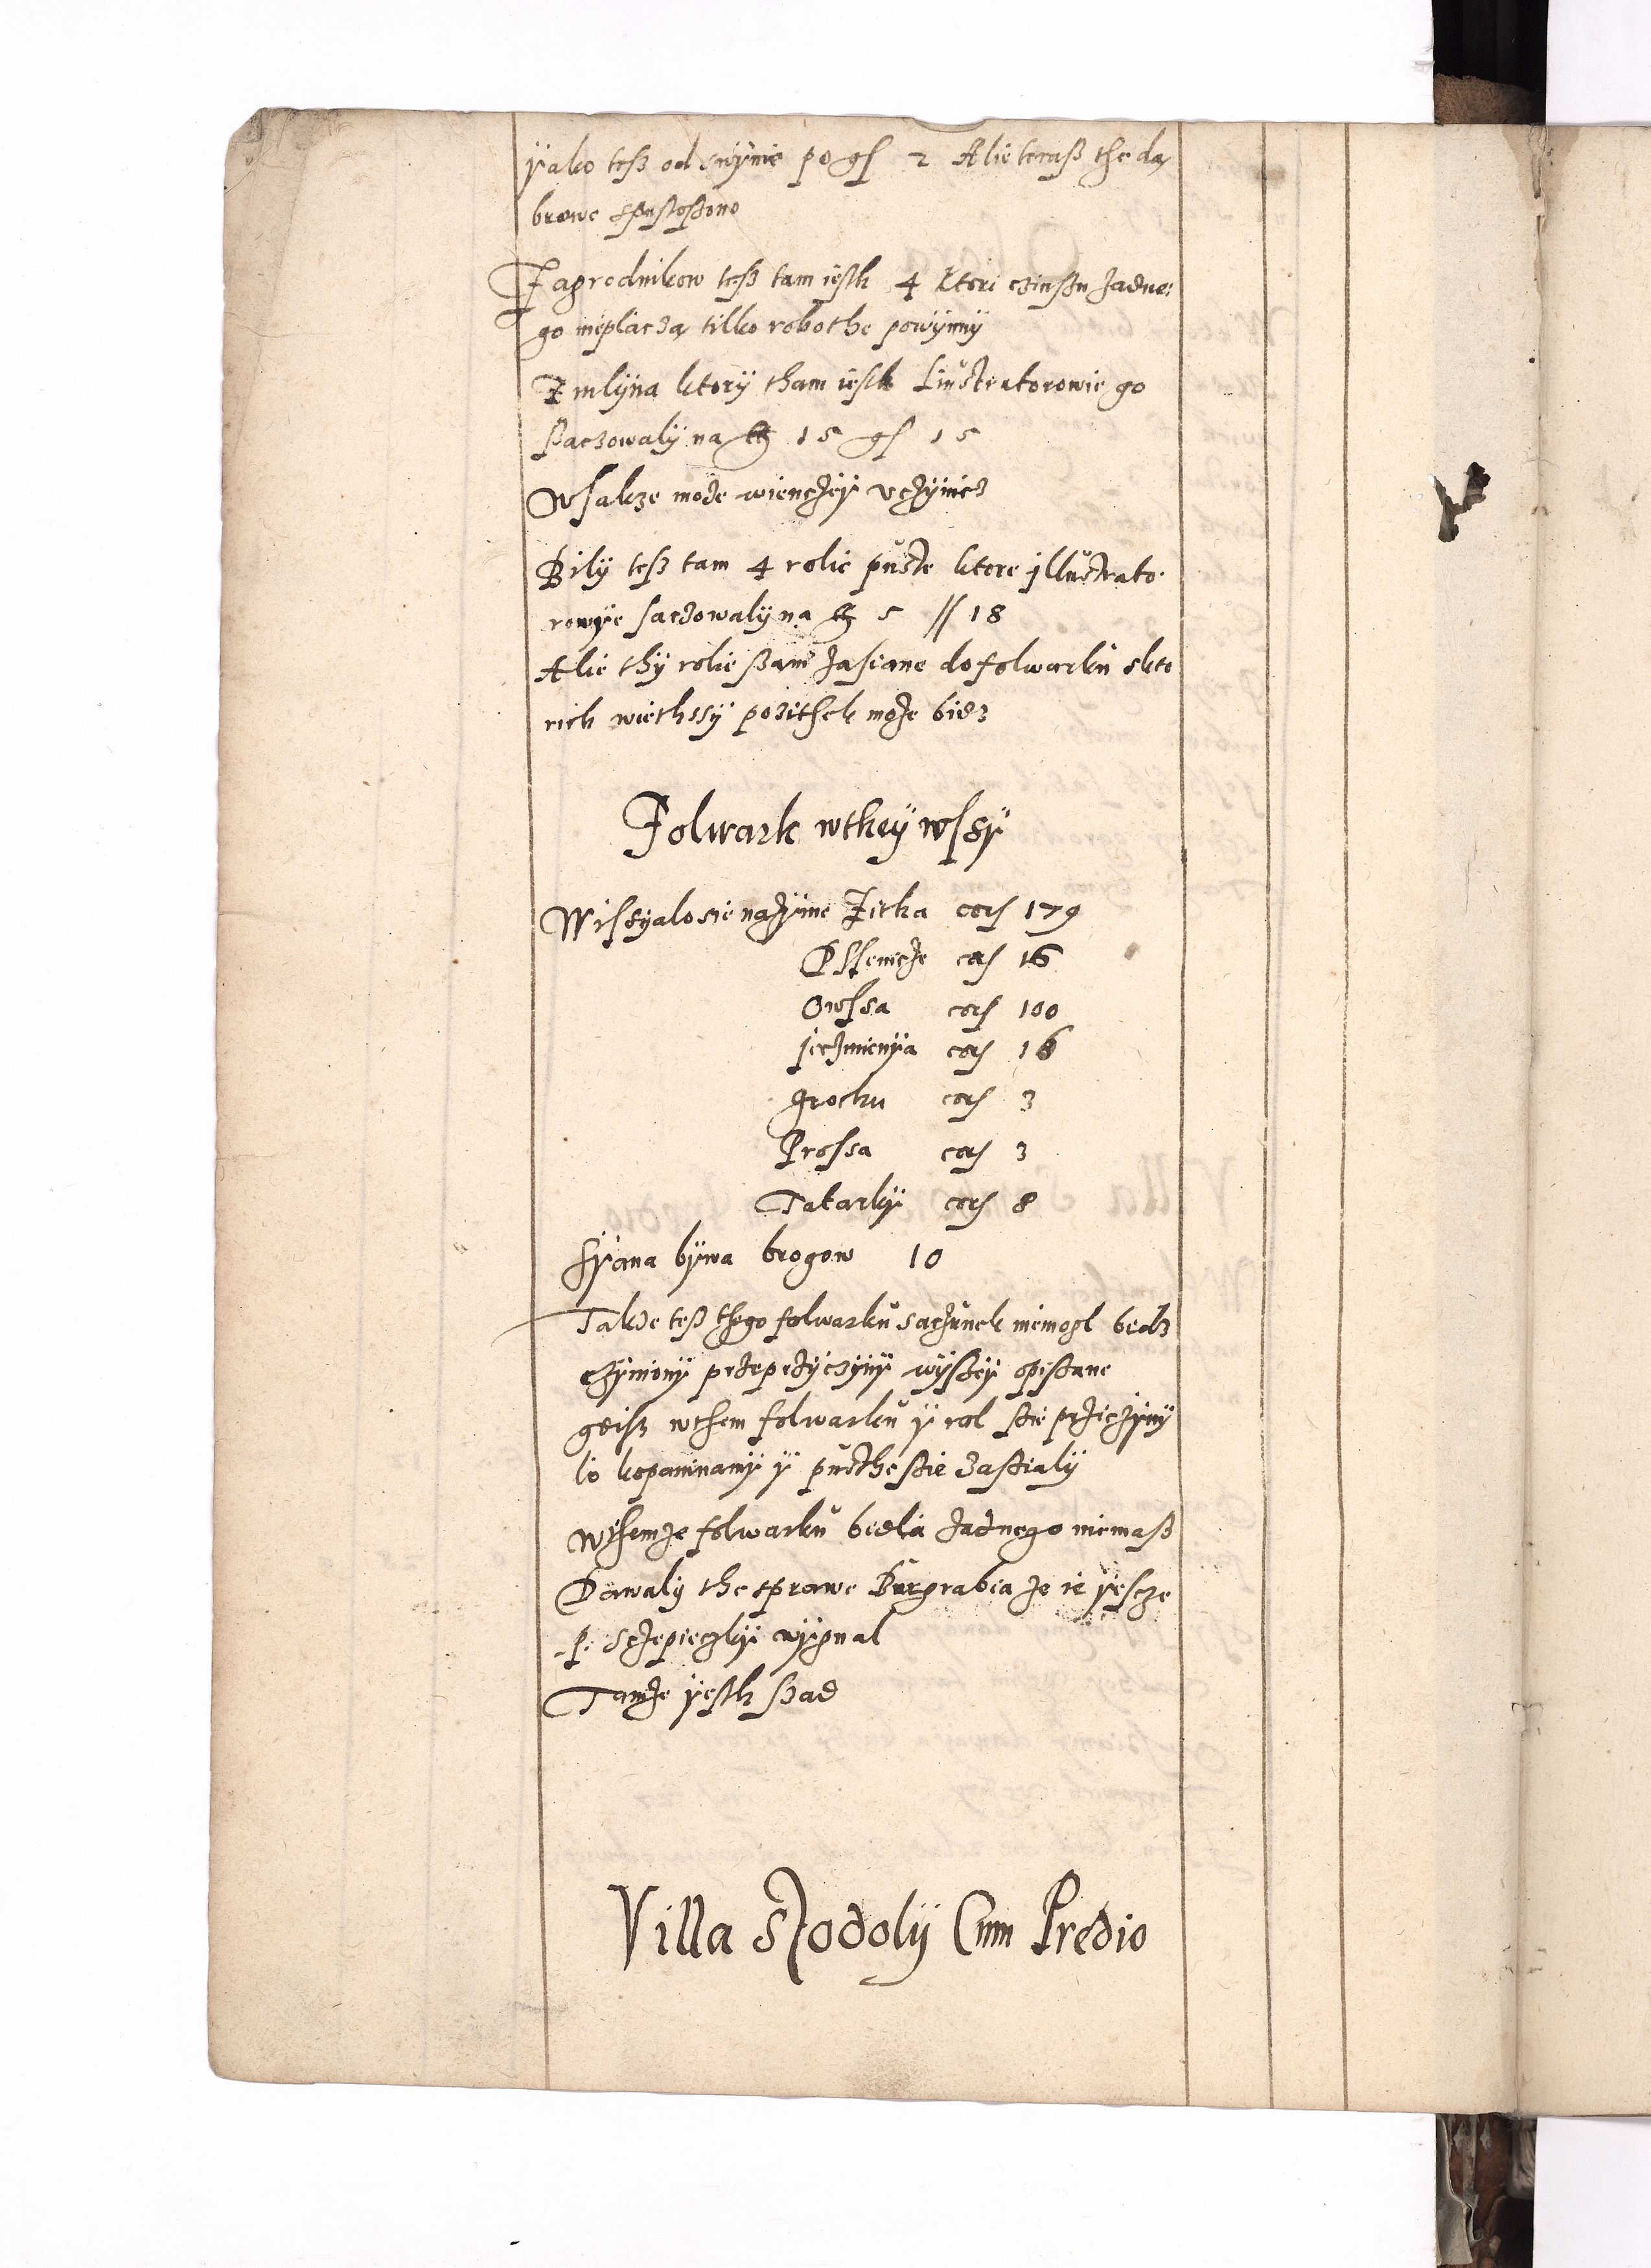 yako tesz od swynie po gr 2 Alie terasz the da,
browe spustoszono
Zagrodnikow tesz tam iesth 4 ktori czinszu zadne:
go nieplacza, tilko robothe powynny
Z mlyna ktory tham iesth Liustratorowie go
szaczowaly na 15 gr 15
Wsakze moze wienczey uczynicz
Bily tesz tam 4 rolie puste ktore illustrato
rowye saczowaly na 5 // 18
Alie thy rolie szam zasiane do folwarku skto
rich wiethssy pozithek moze bidz
Folwark wthey wssy
Wissyalo sie nazyme Zitha cor 179
Pssenicze cor 16
Owssa cor 100
jeczmienya cor 16
Grochu cor 3
Prossa cor 3
Tatarky cor 8
Syana bywa brogow 10
Takze tesz thego folwarku saczunek niemogl bedz
czyniony przeprzyczyny wyszey opiszane
gdisz wthem folwarku y rol szie prziczyny
lo kopaninamy y pusthe szie zastialy
Wthemze folwarku bedla zadnego niemasz
Dawaly the sprawe Burgrabia ze ie yescze
p. Sczepieczky wygnal
Tamze yesth szad
Villa Stodoly Cum Predio